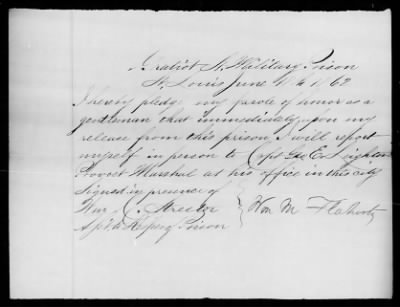 Gratiot St. Military Prison
St. Louis June 1862
I hereby pledge my parole of honor as a
gentleman that immediately upon my
release from this prison, I will report
myself in person to Capt Geo E. Leighton
Provost Marshal at his office in this city
Signed in presence of
Wm Wm M Flaherty
Asst Keeper of Prison